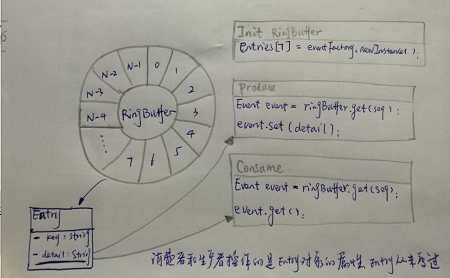 Init RingBuffer
Entries[7] = eventFactory.newInstance();
N-2
N-1
0
1
N-3
2
N-4
RingBuffer
3
4
7
6
5
Produce
Event event = ringBuffer.get(seq);
event.set(detail);
Consame
Event event = ringBuffer.get(seq);
event.get();
Entry
- key: String
- detail: String
消费者和生产者操作的是Entry对象的属性, Entry从来